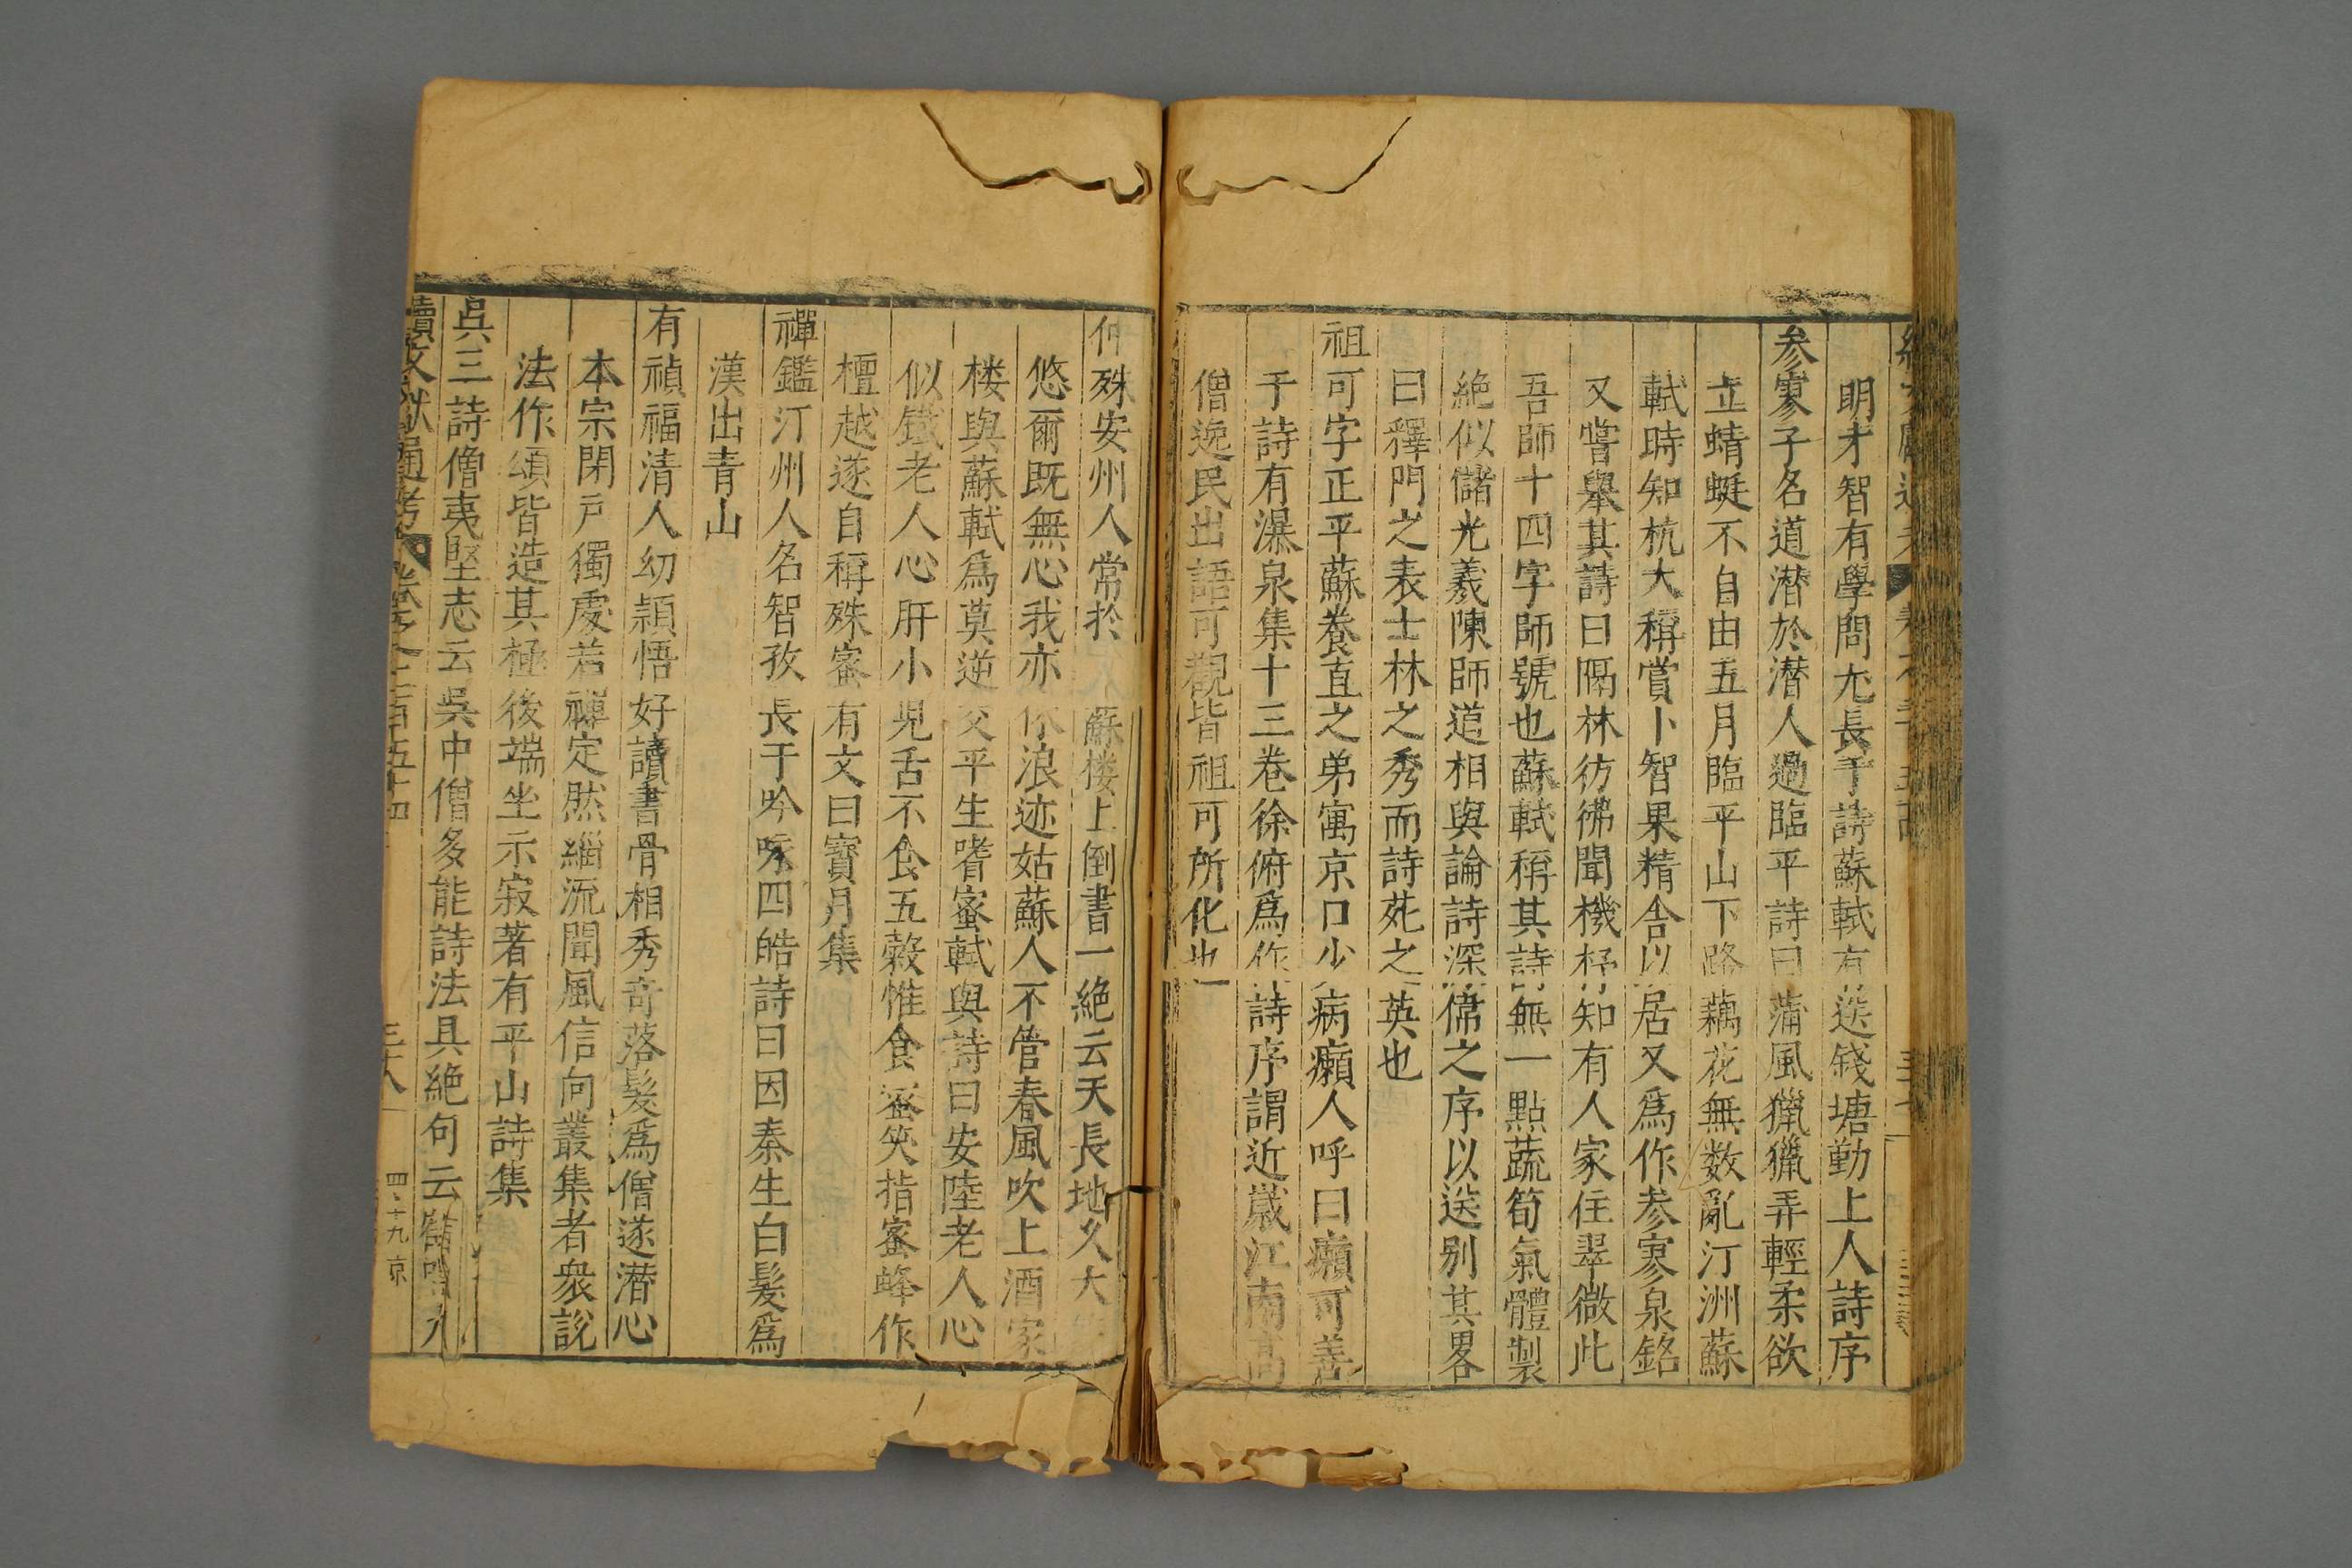 明才智有學問尢長于詩蘇軾有送錢塘勤上人詩序
参寥子名道潜於潜人過臨平詩曰蒲風獵獵弄輕柔欲
立蜻蜓不自由五月臨平山下路藕花無数亂汀洲蘇
軾時知杭大稱賞卜智果精舎以居又爲作参寥泉銘
又嘗舉其詩曰隔林彷彿聞機杼知有人家住翠微此
吾師十四字師號也蘇軾稱其詩無一點蔬筍氣體製
絶似儲光羲陳師道相與論詩深偹之序以送别其畧
曰釋門之表士林之秀而詩苑之英也
祖可字正平蘇養直之弟寓京口少病癩人呼曰癩可善
于詩有瀑泉集十三卷徐俯爲作詩序謂近歲江南高
僧逸民出語可觀皆祖可所化也
仲殊安州人常於蘇楼上倒書一絶云天長地久大
悠爾既無心我亦你浪迹姑蘇人不管春風吹上酒家
楼與蘇軾爲莫逆交平生嗜蜜軾與詩曰安陸老人心
似鐵老人心肝小兒舌不食五穀惟食蜜笑指蜜蜂作
檀越遂自稱殊蜜有文曰寶月集
禪鑑汀州人名智孜長于吟咏四皓詩曰因秦生白髮爲
漢出青山
有禎福清人幼穎悟好讀書骨相秀奇落髮爲僧遂潜心
本宗閉戶獨處若禪定然緇流聞風信向叢集者衆説
法作頌皆造其極後端坐示寂著有平山詩集
吳三詩僧夷堅志云吳中僧多能詩法具絶句云
續文獻通考 卷之二百五十四 三十八 四十九 京